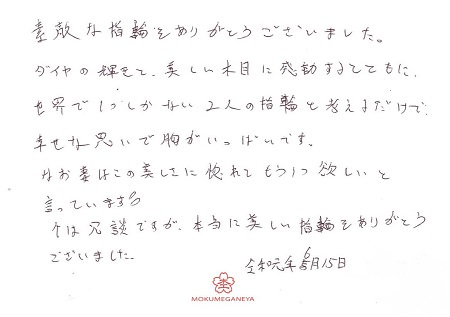 素敵な指輪をありがとうございました。
ダイヤの輝きと、美しい木目に感動するとともに、
世界で1つしかない2人の指輪と考えるだけで、
幸せな思いで胸がいっぱいです。
なお妻はこの美しさに惚れてもう1つ欲しいと
言っています
は冗談ですが、本当に美しい指輪をありがとう
ございました。
令和元年6月15日
MOKUMEGANEYA